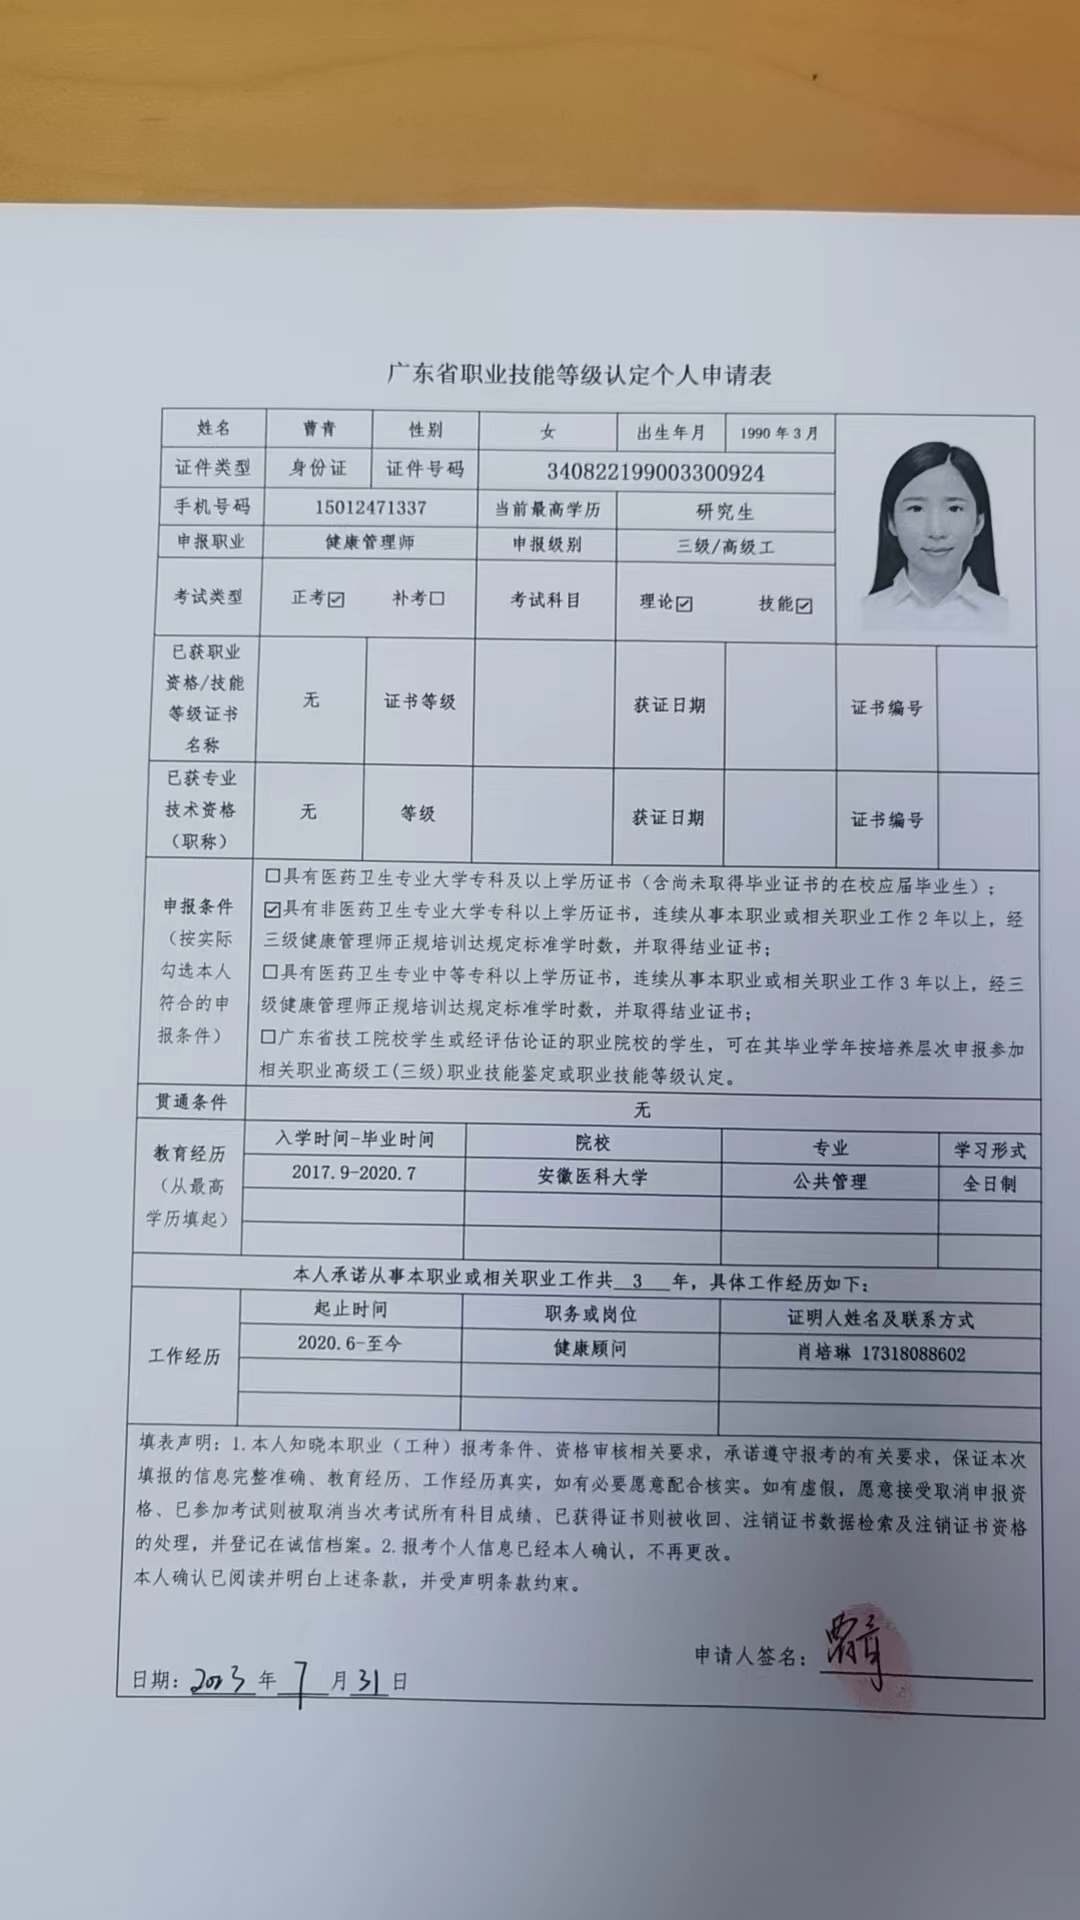 广东省职业技能等级认定个人申请表
姓名 曹青 性别 女 出生年月 1990 年 3 月
证件类型 身份证 证件号码 340822199003300924
手机号码 15012471337 当前最高学历 研究生
申报职业 健康管理师 申报级别 三级/高级工
考试类型 正考☑ 补考☐ 考试科目 理论☑ 技能☑
已获职业
资格/技能
等级证书
名称
无 证书等级 获证日期 证书编号
已获专业
技术资格
（职称）
无 等级 获证日期 证书编号
申报条件
（按实际
勾选本人
符合的申
报条件）
☐具有医药卫生专业大学专科及以上学历证书（含尚未取得毕业证书的在校应届毕业生）；
☑具有非医药卫生专业大学专科以上学历证书，连续从事本职业或相关职业工作 2 年以上，经
三级健康管理师正规培训达规定标准学时数，并取得结业证书；
☐具有医药卫生专业中等专科以上学历证书，连续从事本职业或相关职业工作 3 年以上，经三
级健康管理师正规培训达规定标准学时数，并取得结业证书；
☐广东省技工院校学生或经评估论证的职业院校的学生，可在其毕业学年按培养层次申报参加
相关职业高级工(三级)职业技能鉴定或职业技能等级认定。
贯通条件 无
教育经历
（从最高
学历填起）
入学时间-毕业时间 院校 专业 学习形式
2017.9-2020.7 安徽医科大学 公共管理 全日制
本人承诺从事本职业或相关职业工作共 3 年，具体工作经历如下：
工作经历
起止时间 职务或岗位 证明人姓名及联系方式
2020.6-至今 健康顾问 肖培琳 17318088602
填表声明：1.本人知晓本职业（工种）报考条件、资格审核相关要求，承诺遵守报考的有关要求，保证本次
填报的信息完整准确、教育经历、工作经历真实，如有必要愿意配合核实。如有虚假，愿意接受取消申报资
格、已参加考试则被取消当次考试所有科目成绩、已获得证书则被收回、注销证书数据检索及注销证书资格
的处理，并登记在诚信档案。2.报考个人信息已经本人确认，不再更改。
本人确认已阅读并明白上述条款，并受声明条款约束。
申请人签名：曹青
日期：2023 年 7 月 31 日